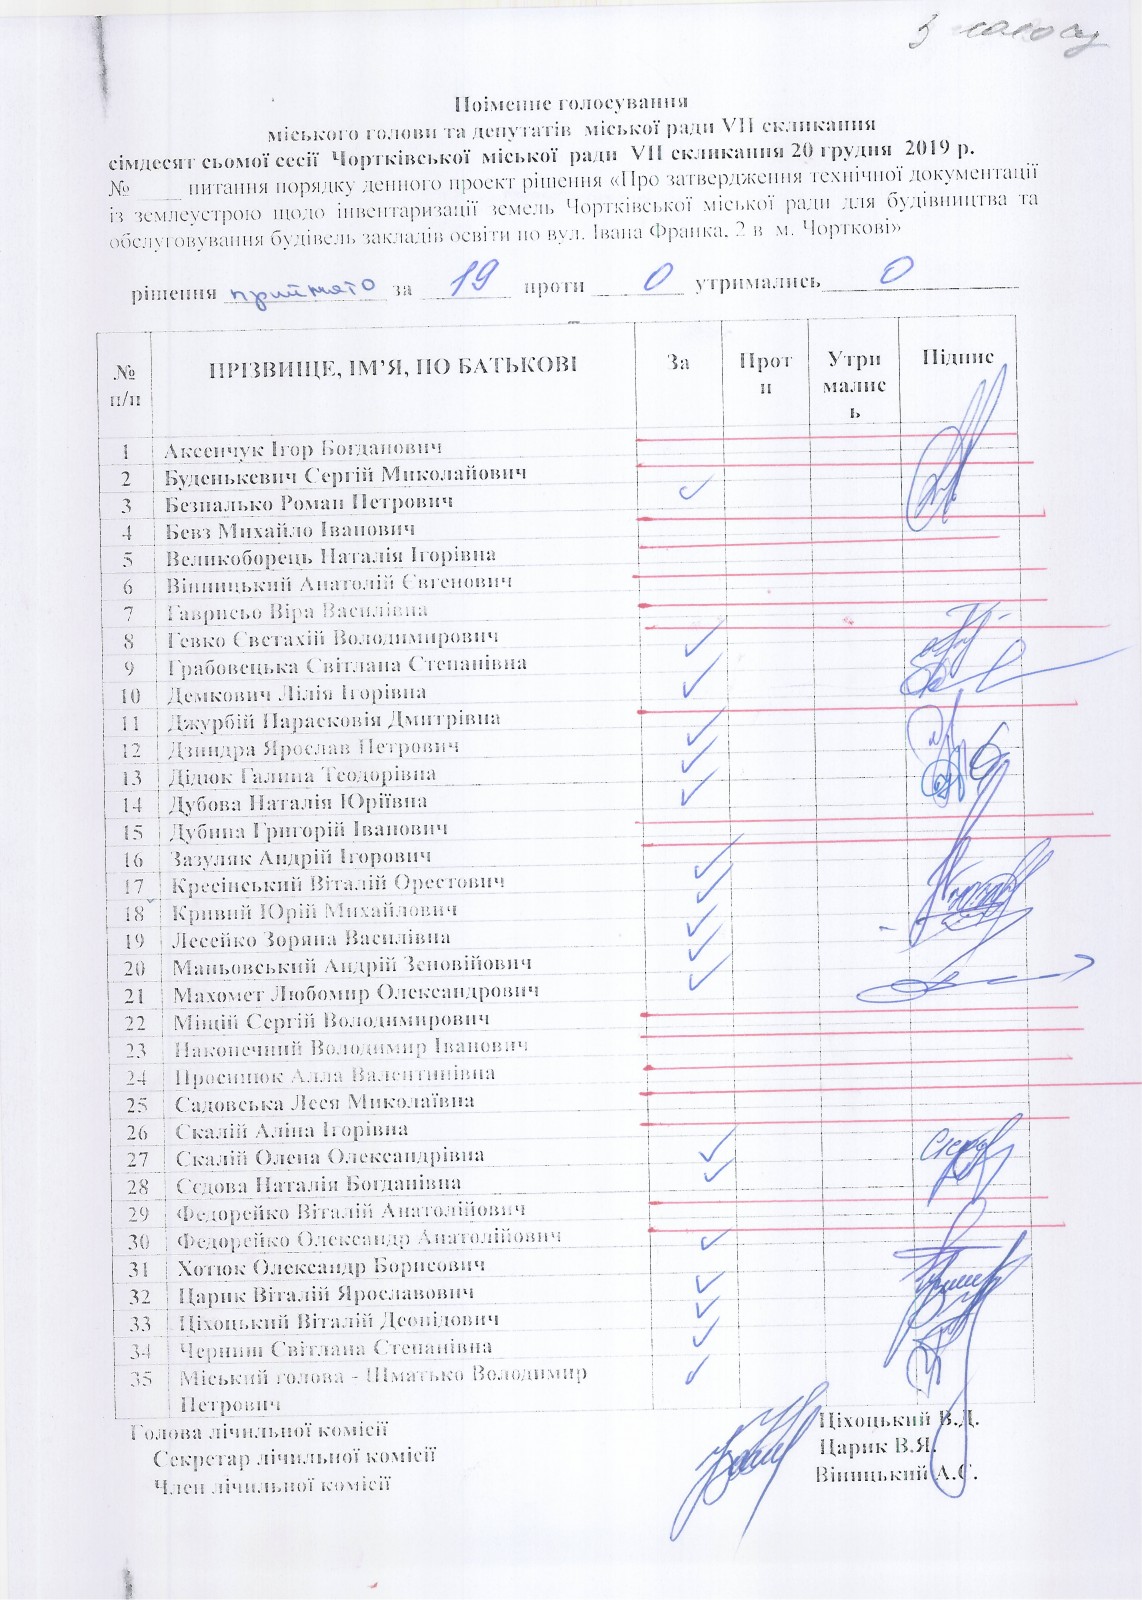 З голосу
Поіменне голосування
міського голови та депутатів міської ради VII скликання
сімдесят сьомої сесії Чортківської міської ради VII скликання 20 грудня 2019 р.
№ ____ питання порядку денного проєкт рішення «Про затвердження технічної документації
із землеустрою щодо інвентаризації земель Чортківської міської ради для будівництва та
обслуговування будівель закладів освіти по вул. Івана Франка, 2 в м. Чорткові»
рішення прийнято за 19 проти 0 утримались 0
№ п/п ПРІЗВИЩЕ, ІМ’Я, ПО БАТЬКОВІ За Проти Утрималися Підпис
1 Аксенчук Ігор Богданович
2 Буденькевич Сергій Миколайович
3 Безпалько Роман Петрович
4 Бевз Михайло Іванович
5 Великоборець Наталія Ігорівна
6 Вінницький Анатолій Євгенович
7 Гаврисьо Віра Василівна
8 Гевко Євстахій Володимирович
9 Грабовецька Світлана Степанівна
10 Демкович Лілія Ігорівна
11 Джурбій Парасковія Дмитрівна
12 Дзиндра Ярослав Петрович
13 Дідюк Галина Теодорівна
14 Дубова Наталія Юріївна
15 Дубина Григорій Іванович
16 Зазуляк Андрій Ігорович
17 Кресінський Віталій Орестович
18 Кривий Юрій Михайлович
19 Лесейко Зоряна Василівна
20 Маньовський Андрій Зеновійович
21 Махомет Любомир Олександрович
22 Міщій Сергій Володимирович
23 Наконечний Володимир Іванович
24 Просинюк Алла Валентинівна
25 Садовська Леся Миколаївна
26 Скалій Аліна Ігорівна
27 Скалій Олена Олександрівна
28 Сєдова Наталія Богданівна
29 Федорейко Віталій Анатолійович
30 Федорейко Олександр Анатолійович
31 Хотюк Олександр Борисович
32 Царик Віталій Ярославович
33 Ціхоцький Віталій Деонідович
34 Черниш Світлана Степанівна
35 Міський голова - Шматько Володимир
Петрович
Голова лічильної комісії Ціхоцький В.Д.
Секретар лічильної комісії Царик В.Я.
Член лічильної комісії Вінницький А.Є.